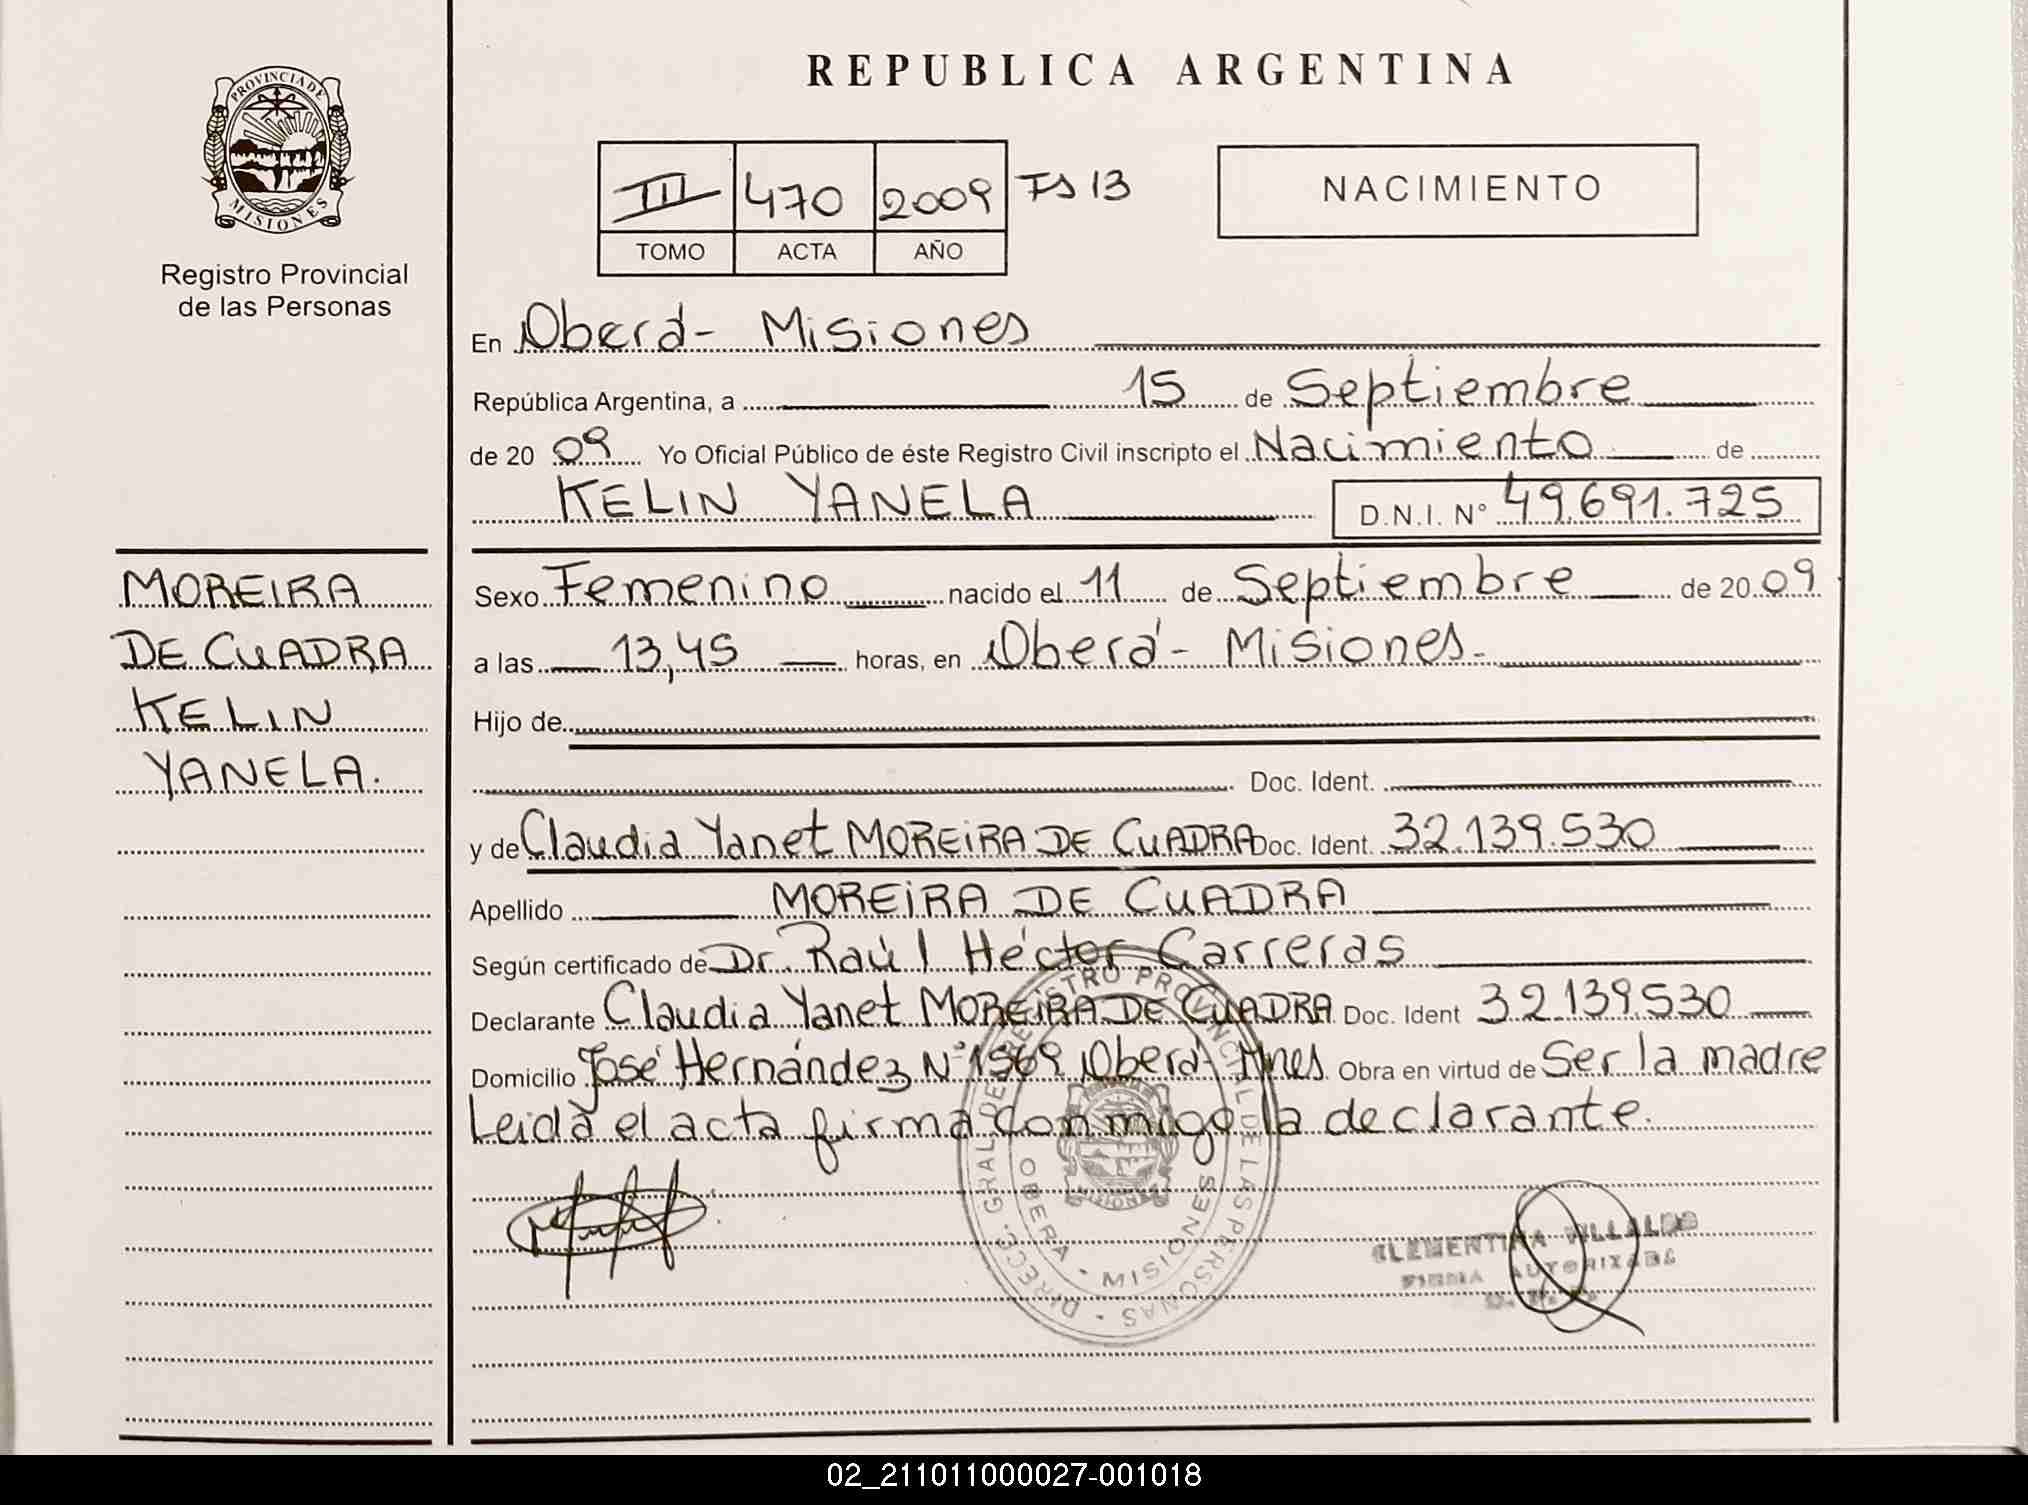 REPUBLICA ARGENTINA
PROVINCIA DE
MISIONES
Registro Provincial
de las Personas
III 470 2009 FS 13
TOMO ACTA AÑO
NACIMIENTO
En Oberá- Misiones
República Argentina, a 15 de Septiembre
de 20 09 Yo Oficial Público de éste Registro Civil inscripto el Nacimiento de
KELIN YANELA D.N.I. N° 49.691.725
MOREIRA
DE CUADRA
KELIN
YANELA.
Sexo Femenino nacido el 11 de Septiembre de 20 09
a las 13,45 horas, en Oberá- Misiones-
Hijo de
Doc. Ident.
y de Claudia Yanet MOREIRA DE CUADRA Doc. Ident. 32.139.530
Apellido MOREIRA DE CUADRA
Según certificado de Dr. Raúl Héctor Carreras
Declarante Claudia Yanet MOREIRA DE CUADRA Doc. Ident 32.139.530
Domicilio José Hernández N° 1569 Oberá- Mnes Obra en virtud de Ser la madre
Leida el acta firma conmigo la declarante.
DIRECC. GRAL. DE REGISTRO PROVINCIAL DE LAS PERSONAS
OBERA - MISIONES
CLEMENTINA VILLALBA
FIRMA AUTORIZADA
02_211011000027-001018